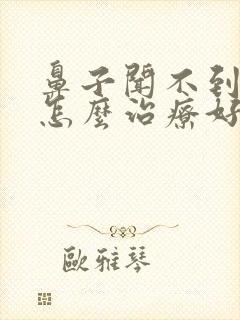 鼻子聞不到
怎麼治療好
歐雅琴